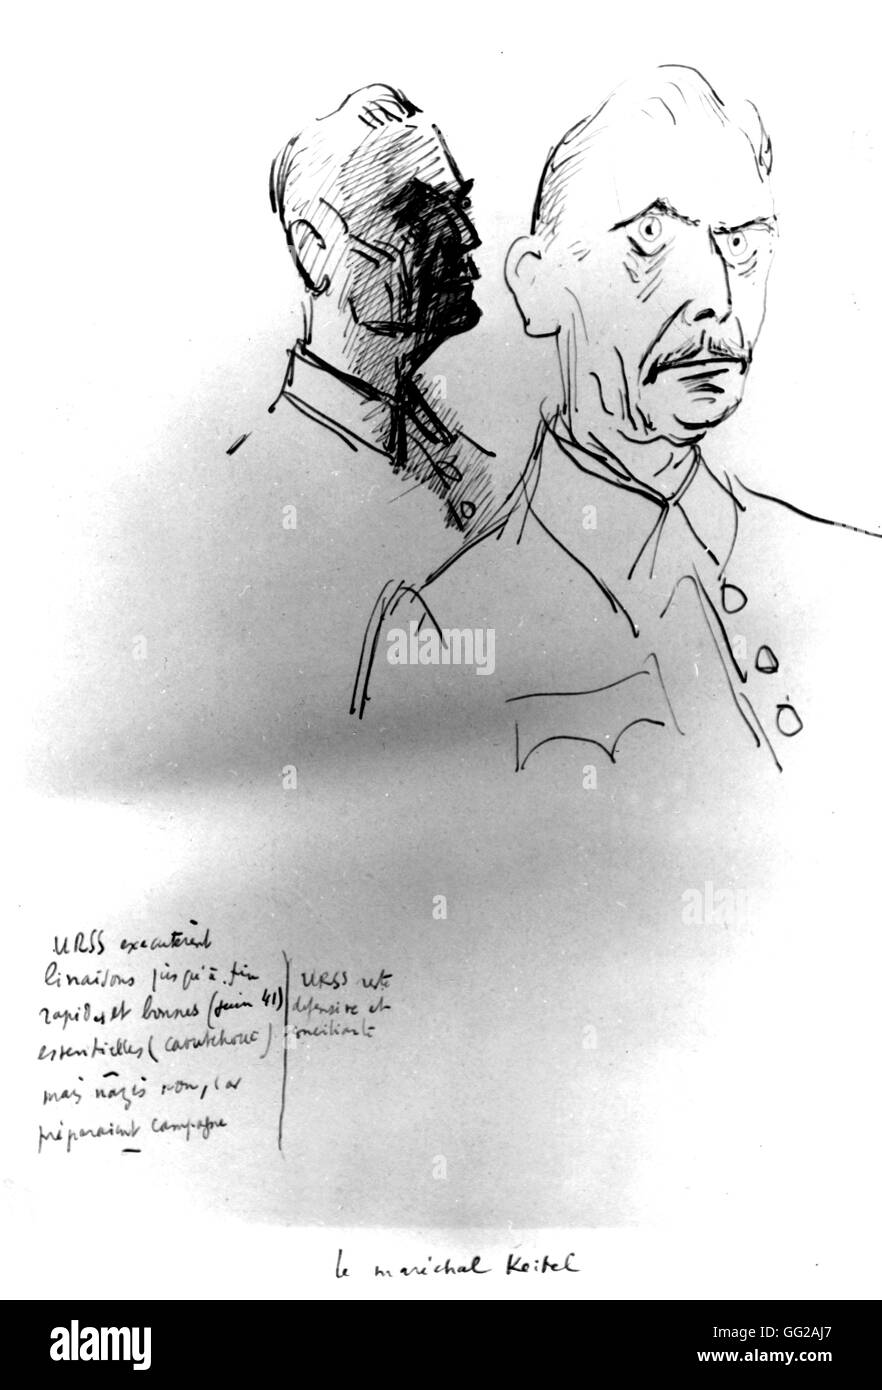 URSS executèrent
livraisons jusqu'à fin
rapides et bonnes (Juin 41)
essentielles (caoutchouc)
mais nazis non, car
préparaient campagne
URSS reste
défensive et
conciliante
le maréchal Keitel
a alamy
alamy stock photo
GG2AJ7
www.alamy.com